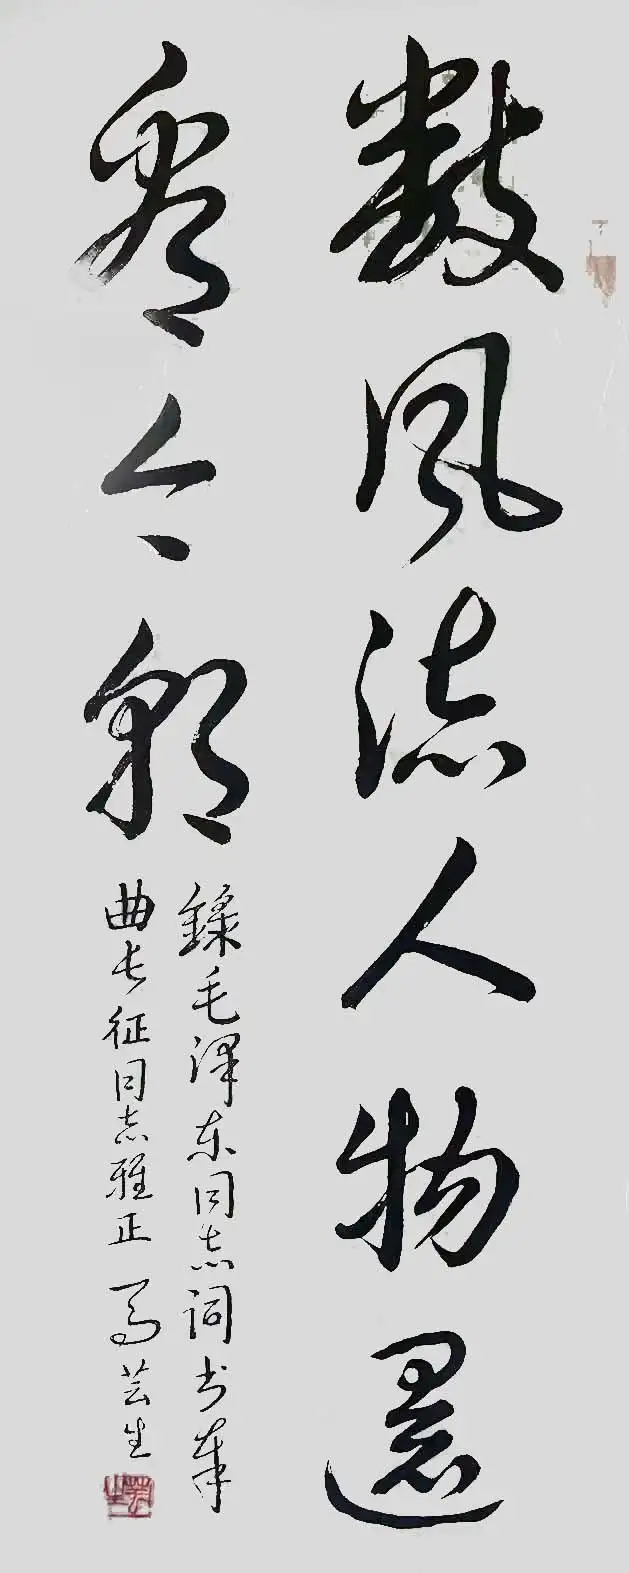 數风流人物還
看今朝
錄毛泽东同志词书奉
曲长征同志雅正 马芸生